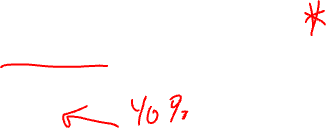 *
40%